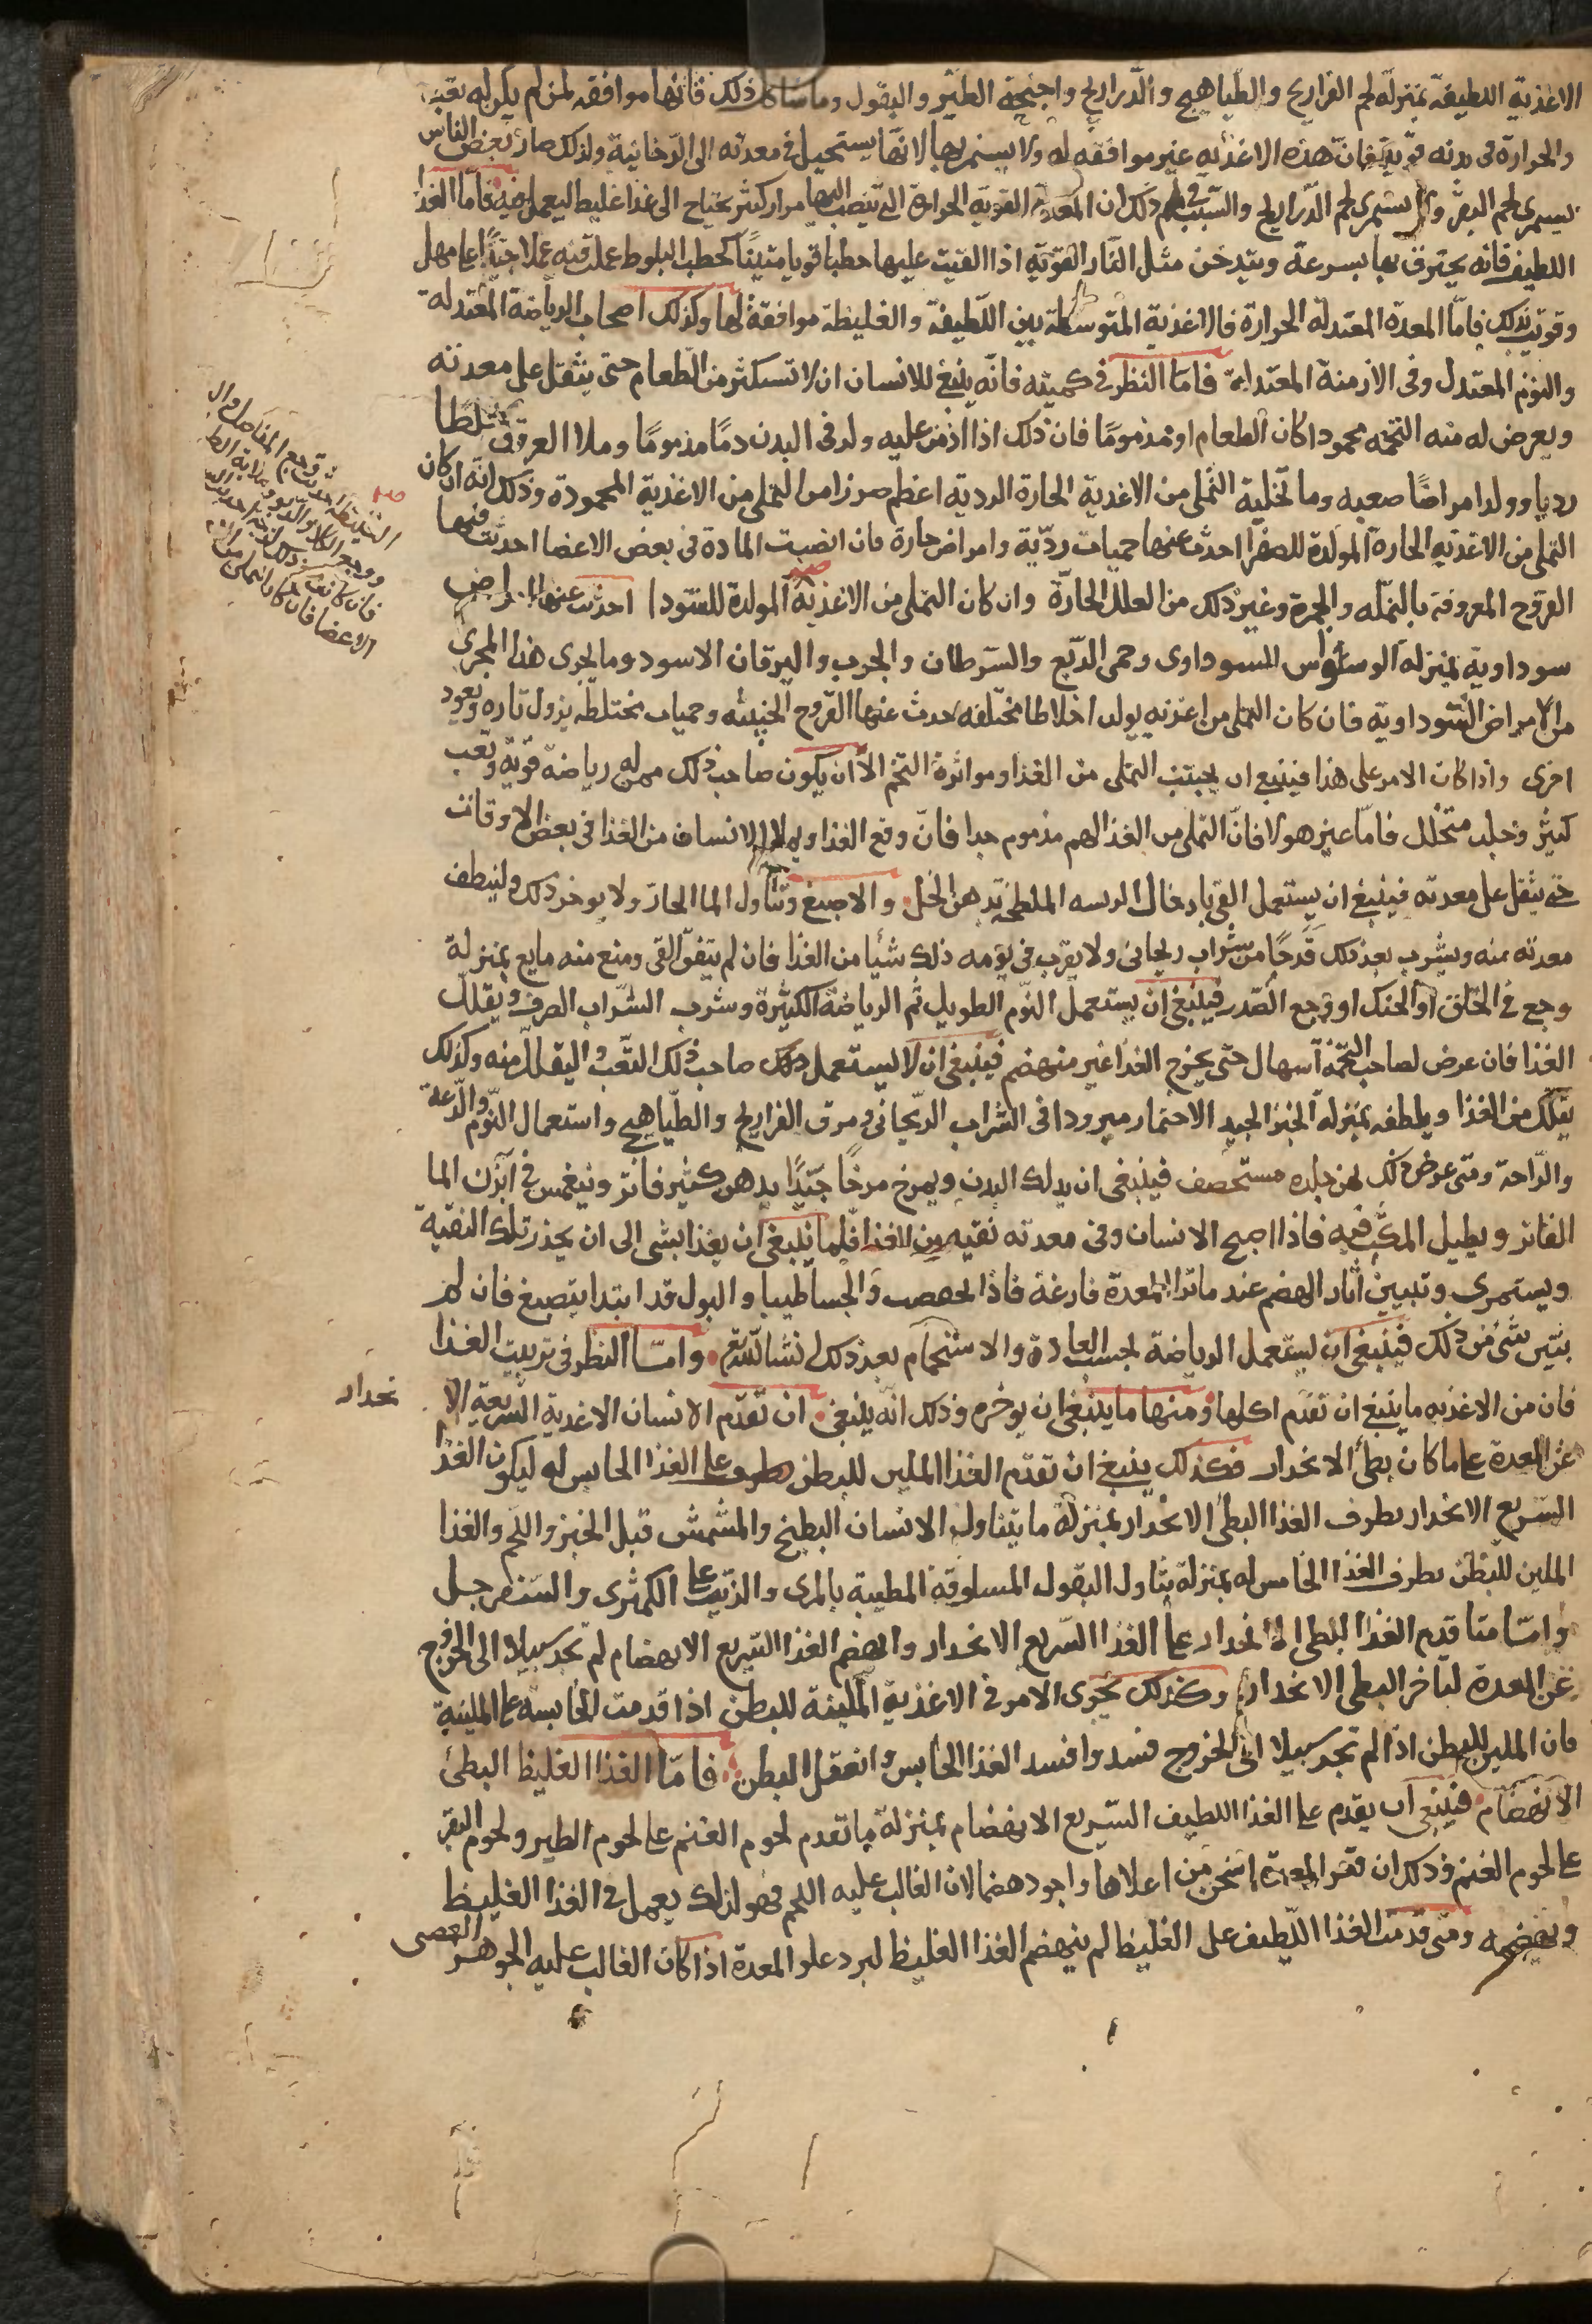 الاغذية اللطيفة بمنزلة لحم الفراريج والطياهيج والدراريج واجنحة الطير والبقول وما شاكل ذلك فانها موافقه لمن لم يكن له تعب
والحرارة في بدنه قوية فان هذه الاغذيه غير موافقه له ولا يستمريها لانها يستحيل في معدته الى الدخانية ولذلك صار بعض الناس
يستمرى لحم البقر ولا يستمرى لحم الدراريج والسبب في ذلك ان المعدة القوية الحرارة التي ينصب اليها مرار كثير يحتاج الى غذا غليظ ليعمل فيه فاما الغذا
اللطيف فانه يحترق بها بسرعة ويتدخن مثل النار القوية اذا القيت عليها حطبا قويا متينا كحطب البلوط عملت فيه عملا جيدا على مهل
وقويت بذلك فاما المعدة المعتدلة الحرارة فالاغذية المتوسطة بين اللطيفة والغليظة موافقة لها وكذلك اصحاب الرياضة المعتدلة
والنوم المعتدل وفي الازمنة المعتدلة فاما النظر في كميته فانه ينبغي للانسان ان لا تستكثر من الطعام حتى يثقل على معدته
ويعرض له منه التخمه محمودا كان الطعام او مذموما فان ذلك اذا ادمن عليه ولد في البدن دما مذموما وملا العروق خلطا
رديا وولد امراضا صعبه وما لجملة التملي من الاغذية الحارة الردية اعظم ضررا من التملي من الاغذية المحمودة وذلك انه ان كان
التملي من الاغذيه الحارة المولدة للصفرا احدث عنها حميات ردية وامراض حارة فان انصبت المادة في بعض الاعضا احدثت فيها
القروح المعروفة بالنملة والجمرة وغير ذلك من العلل الحارة وان كان التملي من الاغذية المولدة للسودا احدثت عنها امراض
سوداوية بمنزلة الوسواس السوداوى وحمى الربع والسرطان والجرب واليرقان الاسود وما يجرى هذا المجرى
من الامراض السوداوية فان كان التملي من اغذيه يولد اخلاطا مختلفه حدث عنها القروح الخبيثه وحميات مختلطة يزول تاره ويعود
اخرى واذا كان الامر على هذا فينبغي ان يجتنب التملي من الغذا ومواترة التخم الا ان يكون صاحب ذلك ممن له رياضة قوية وتعب
كثير وجلد متخلل فاما غير هولا فان التملي من الغذا لهم مذموم جدا فان وقع الغذا ويملا الانسان من الغذا في بعض الاوقات
حتى يثقل على معدته فينبغي ان يستعمل القى بادخال الريسه الملطخة بدهن الخل والاصبع وتناول الما الحار ولا يوخر ذلك ولينظف
معدته منه ويشرب بعد ذلك قدحا من شراب ريحاني ولا يقرب في يومه ذلك شيا من الغذا فان لم يتفق القى ومنع منه مانع بمنزلة
وجع في الحلق او الحنك او وجع الصدر فينبغي ان يستعمل النوم الطويل ثم الرياضة الكثيرة وشرب الشراب الصرف ويقلل
الغذا فان عرض لصاحب التخمة اسهال حتى يخرج الغذا غير منهضم فينبغي ان لا يستعمل صاحب ذلك التعب والتقليل منه وكذلك
يقلل من الغذا ويلطفه بمنزلة الخبز الجيد الاختمار مبرودا في الشراب الريحاني ومرق الفراريج والطياهيج واستعمال النوم والدعة
والراحة ومتى عرض ذلك لمن جلده مستحصف فينبغي ان يدلك البدن ويمرخ مرخا جيدا بدهن كثير فاتر وينغمس في ابزن الما
الفاتر ويطيل المكث فيه فاذا اصبح الانسان وفي معدته بقيه من الغذا فلا ينبغي ان يغذا بشى الى ان يحذر تلك البقية
ويستمرى وتبين اثار الهضم عند ما ترا المعدة فارغة والجسا طيبا والبول قد ابتدا ينصبغ فان لم
يتبين شى من ذلك فينبغي ان يستعمل الرياضة بحسب العادة والاستحمام بعد ذلك ان شا الله واما النظر في ترتيب الغذا
فان من الاغذيه ما ينبغي ان تقدم اكلها ومنها ما ينبغي ان يوخر وذلك انه ينبغي ان تقدم الانسان الاغدية السريعة الا
نحدار
عن المعدة على ما كان بطى الانحدار فكذلك ينبغي ان تقدم الغذا الملين للبطن على الغذا الحابس له ليكون الغذا
السريع الانحدار يطرف الغذا البطى الانحدار بمنزلة ما يتناول الانسان البطيخ والمشمش قبل الخبز واللحم والغذا
الملين للبطن يطرف الغذا الحابس له بمنزلة تناول البقول المسلوقة المطيبة بالمرى والزيت على الكمثرى والسفرجل
واما متا قدم الغذا البطى الانحدار على الغذا السريع الانحدار وانهضم الغذا السريع الانهضام لم تجد سبيلا الى الخروج
عن المعدة لتاخر البطى الانحدار وكذلك يجرى الامر في الاغذية الملينة للبطن اذا قدمت الحابسه على الملينة
فان الملين للبطن اذا لم تجد سبيلا الى الخروج فسد وافسد الغذا الحابس وانعقل البطن فاما الغذا الغليظ البطئ
الانهضام فينبغي ان يقدم على الغذا اللطيف السريع الانهضام بمنزلة ما تقدم لحوم الغنم على لحوم الطير ولحوم البقر
على لحوم الغنم وذلك ان قعر المعدة اسخن من اعلاها واجود هضما لان الغالب عليه اللحم فهو لذلك يعمل في الغذا الغليظ
ويهضمه ومتى قدمت الغذا اللطيف على الغليظ لم ينهضم الغذا الغليظ لبرد علو المعدة اذا كان الغالب عليه الجوهر العصبى